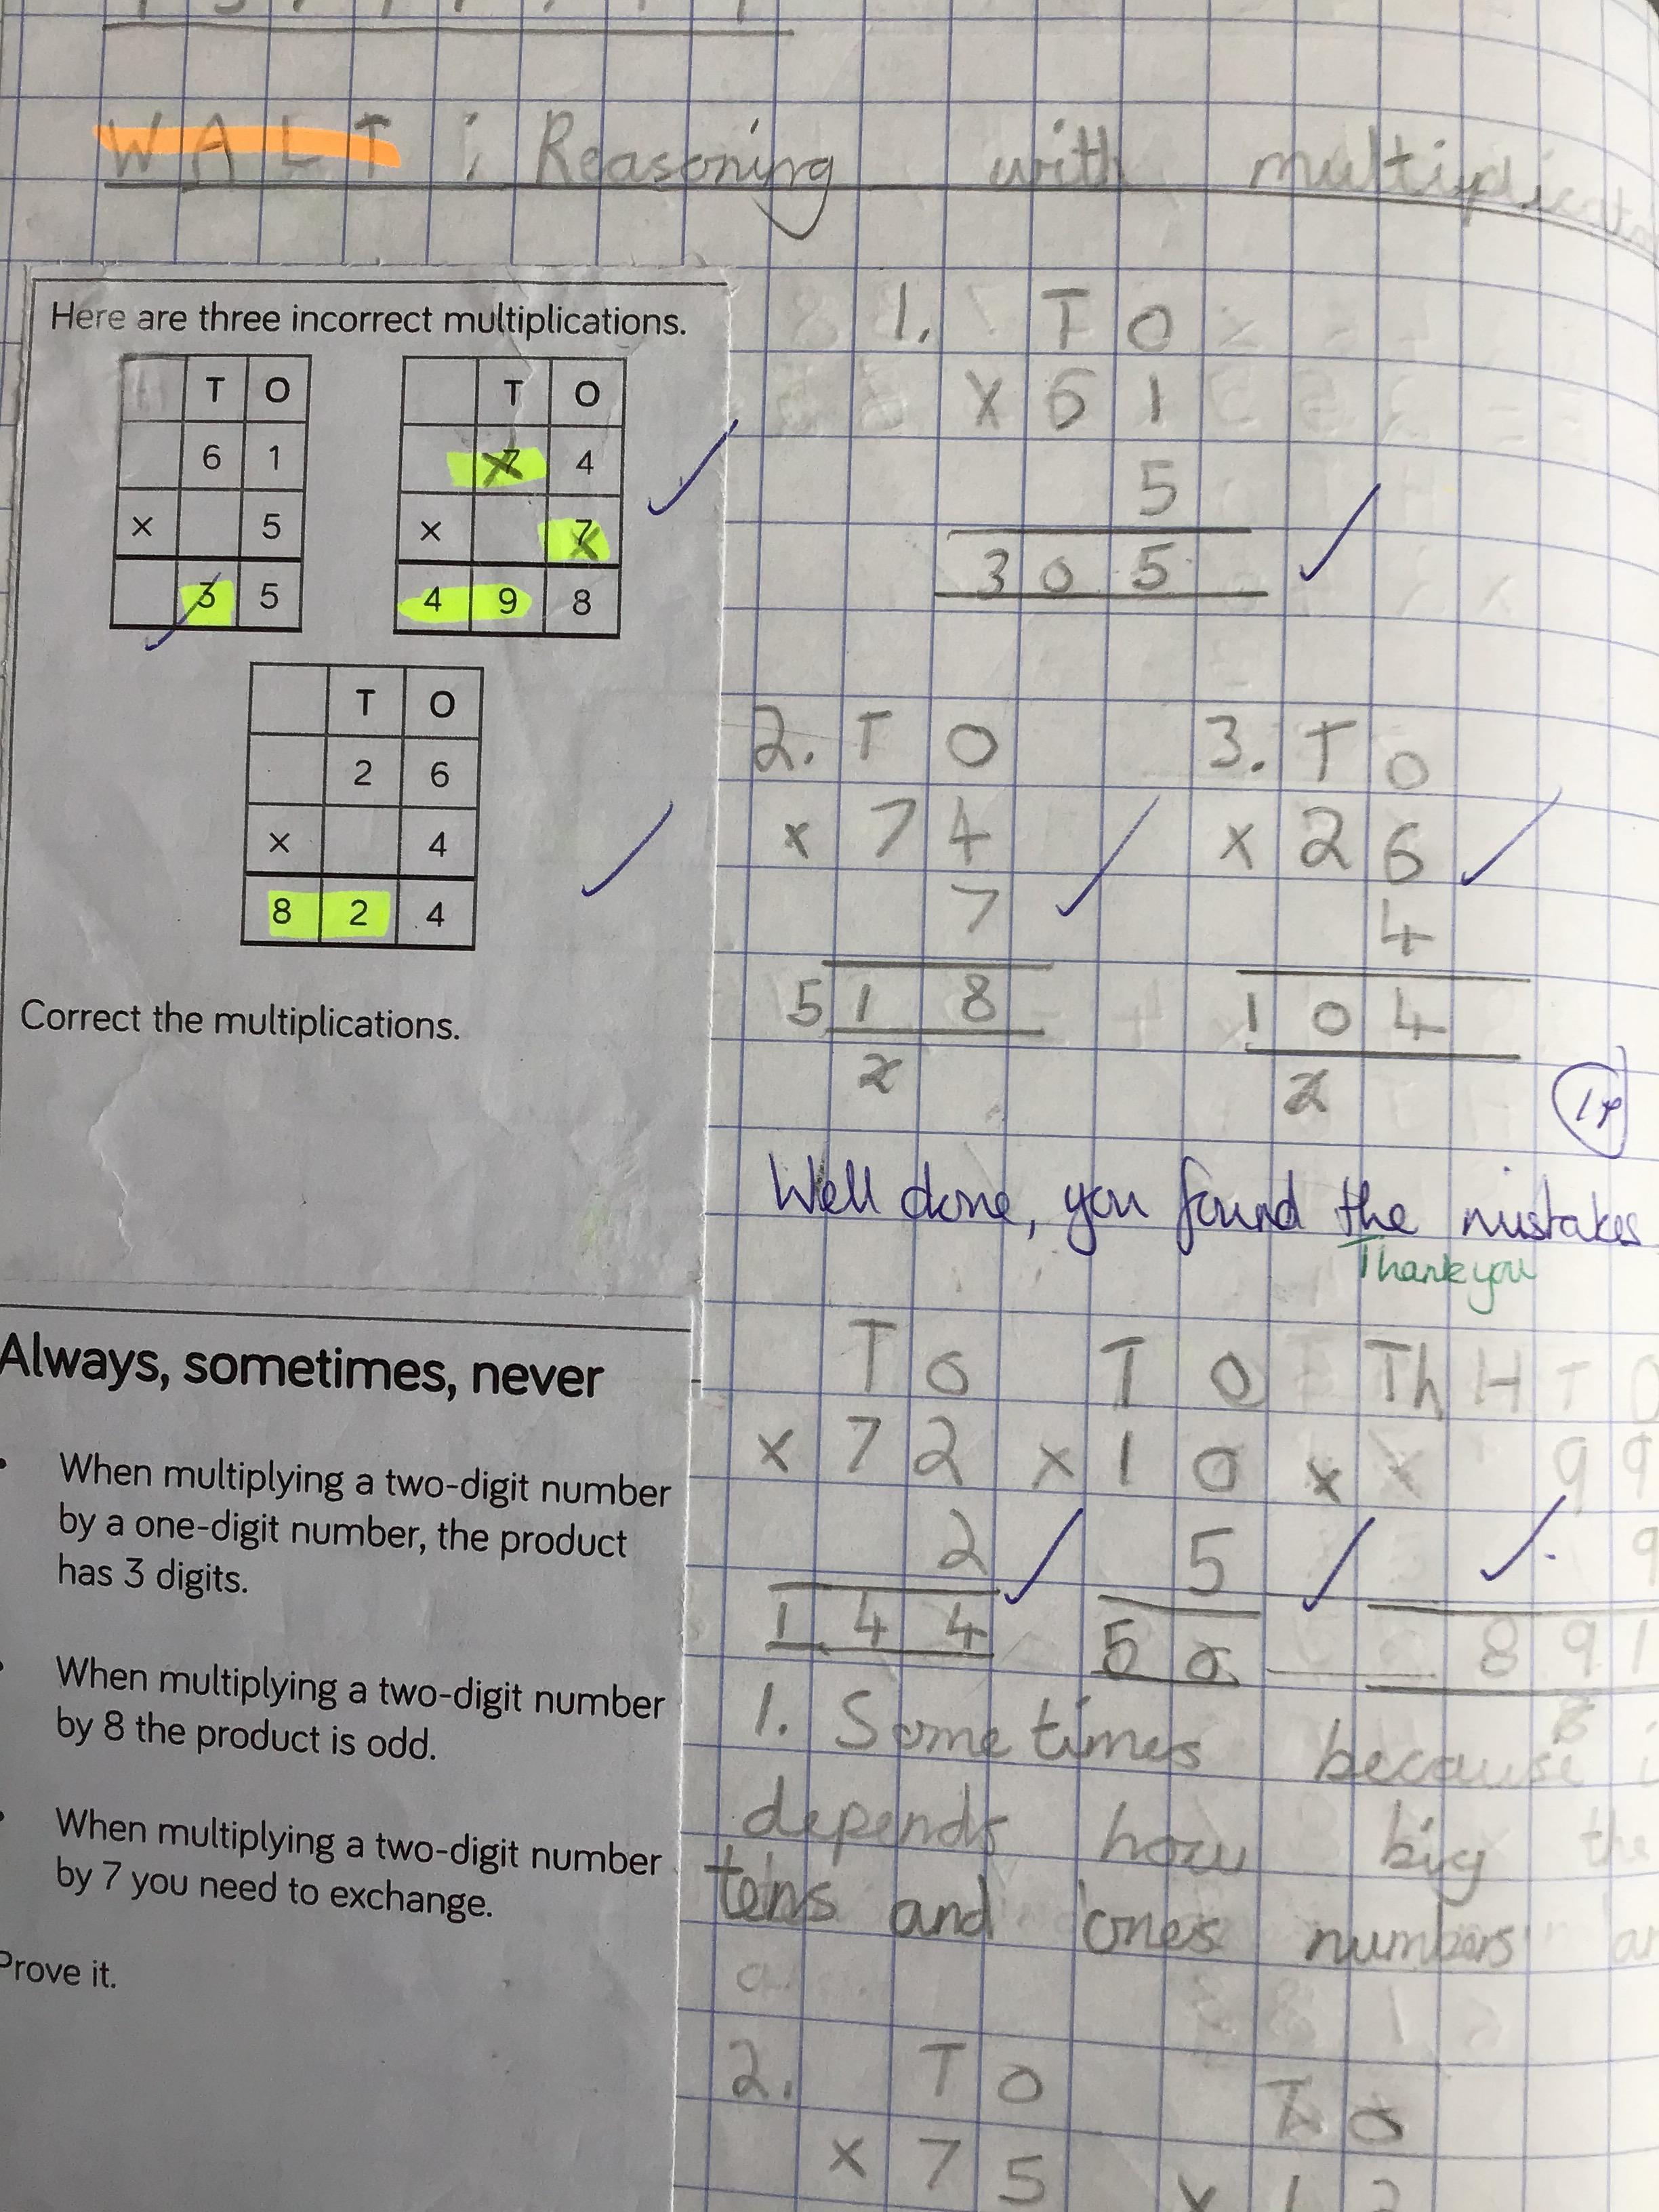 WALT: Reasoning with multiplicatio
Here are three incorrect multiplications.
T O
6 1
× 5
3 5
T O
7 4
× 7
4 9 8
T O
2 6
× 4
8 2 4
Correct the multiplications.
1. T O
× 6 1
5
3 0 5
2. T O
× 7 4
7
5 1 8
2
3. T O
× 2 6
4
1 0 4
2
Well done, you found the mistakes
Thankyou
Always, sometimes, never
When multiplying a two-digit number
by a one-digit number, the product
has 3 digits.
When multiplying a two-digit number
by 8 the product is odd.
When multiplying a two-digit number
by 7 you need to exchange.
Prove it.
T O
× 7 2
2
1 4 4
T O
× 1 0
5
5 0
Th H T O
× × 9 9
9
8 9 1
8
1. Sometimes because i
depends how big the
tens and ones numbers ar
2. T O
× 7 5
T O
× 1 2